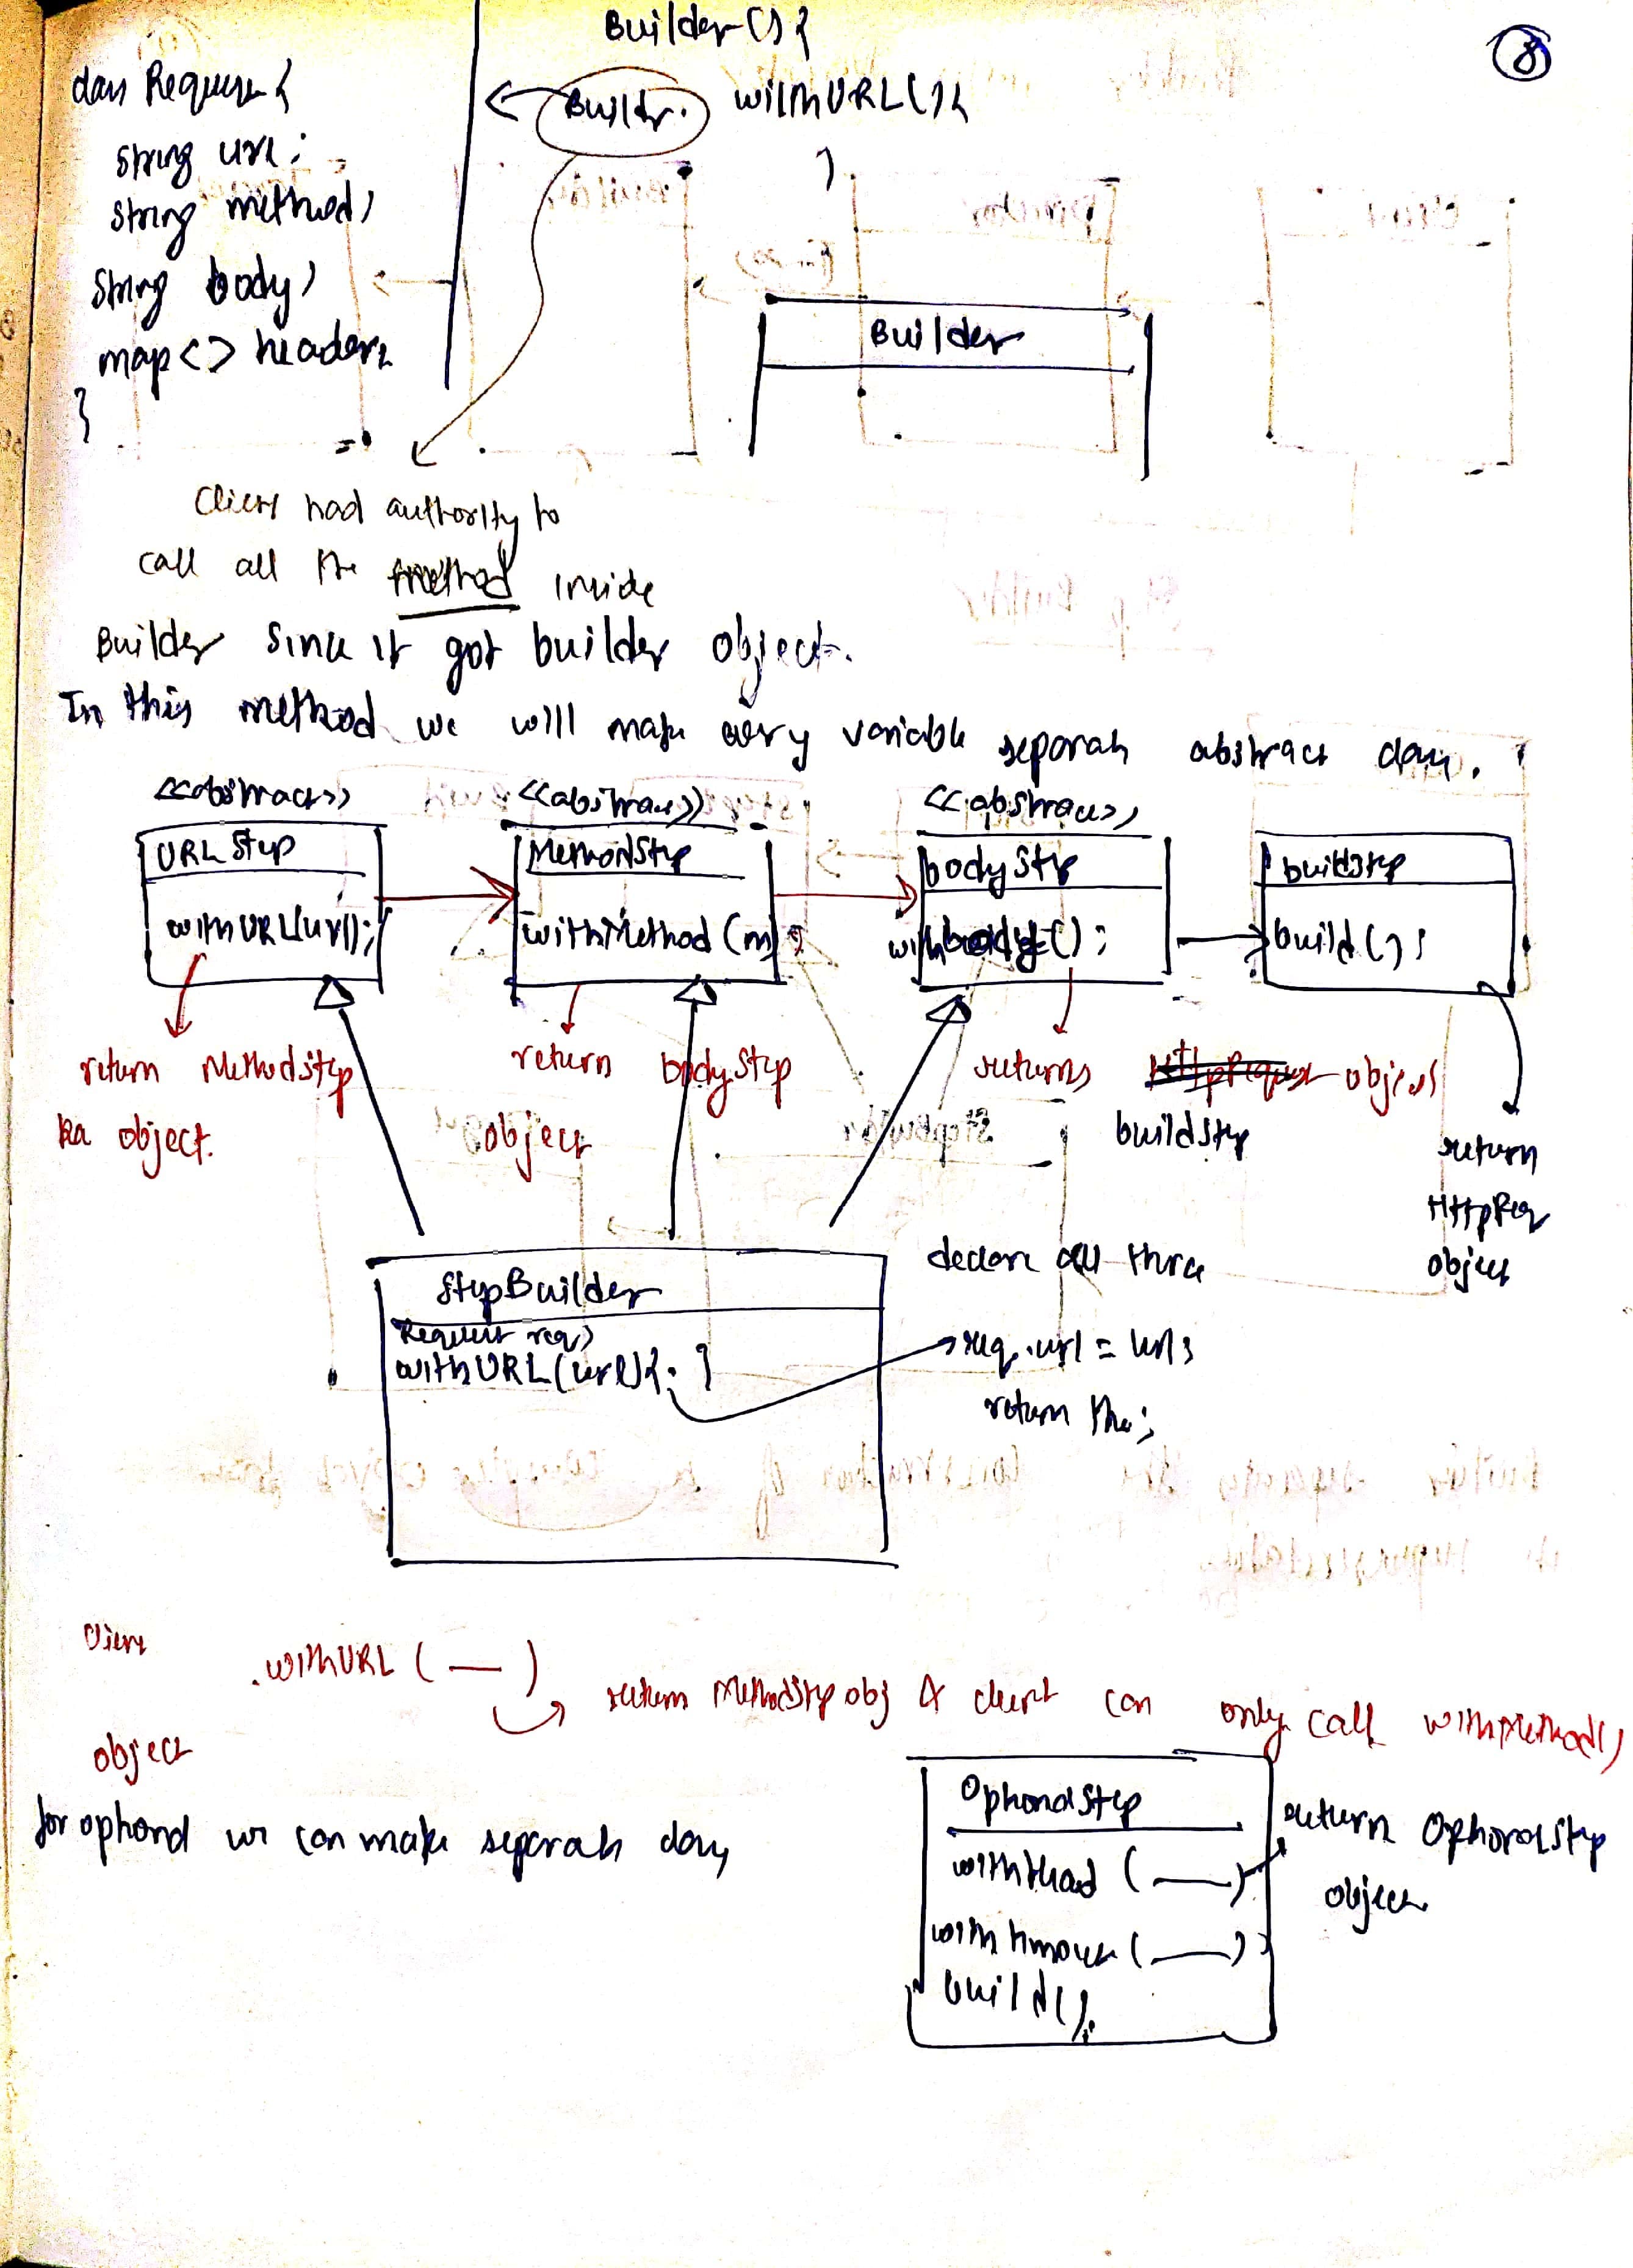 8
class Request {
string url;
string method;
string body;
map<> headers
}
Builder() {
Builder. withURL() {
}
Builder
Client had authority to
call all the method inside
Builder since it got builder object.
In this method we will make every variable separate abstract class.
<<abstract>>
URLStep
withURL(url);
<<abstract>>
MethodStep
withMethod(m);
<<abstract>>
bodyStep
withbody();
buildstep
build();
return MethodStep
ka object.
return bodyStep
object
returns object
buildstep
return
HttpReq
object
StepBuilder
Request req;
withURL(url) { }
declare all three
req.url = url;
return
.withURL( — )
return MethodStep obj & client can only call withMethod()
object
for optional we can make separate class
OptionalStep
withHead ( — )
withtimout ( — )
build();
return OptionalStep
object